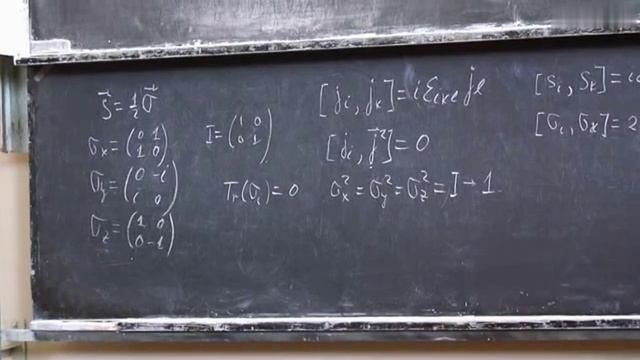 s⃗ = ½ σ⃗
σₓ = (0 1
1 0)
σ_y = (0 -i
i 0)
σ_z = (1 0
0 -1)
I = (1 0
0 1)
Tr(σᵢ) = 0
[jᵢ, jₖ] = i εᵢₖₑ jₑ
[jᵢ, j⃗²] = 0
σₓ² = σ_y² = σ_z² = I → 1
[sᵢ, sₖ] = i
[σᵢ, σₖ] = 2